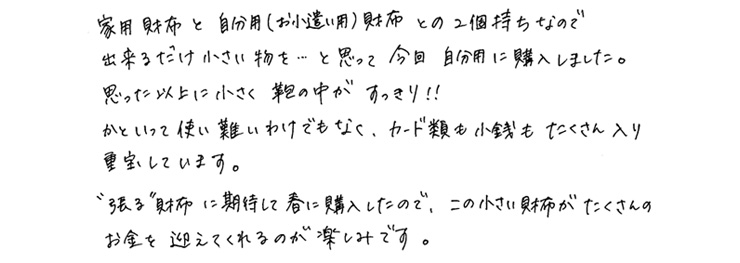 家用財布と自分用(お小遣い用)財布との2個持ちなので
出来るだけ小さい物を…と思って今回自分用に購入しました。
思った以上に小さく鞄の中がすっきり!!
かといって使い難いわけでもなく、カード類も小銭もたくさん入り
重宝しています。
"張る"財布に期待して春に購入したので、この小さい財布がたくさんの
お金を迎えてくれるのが楽しみです。